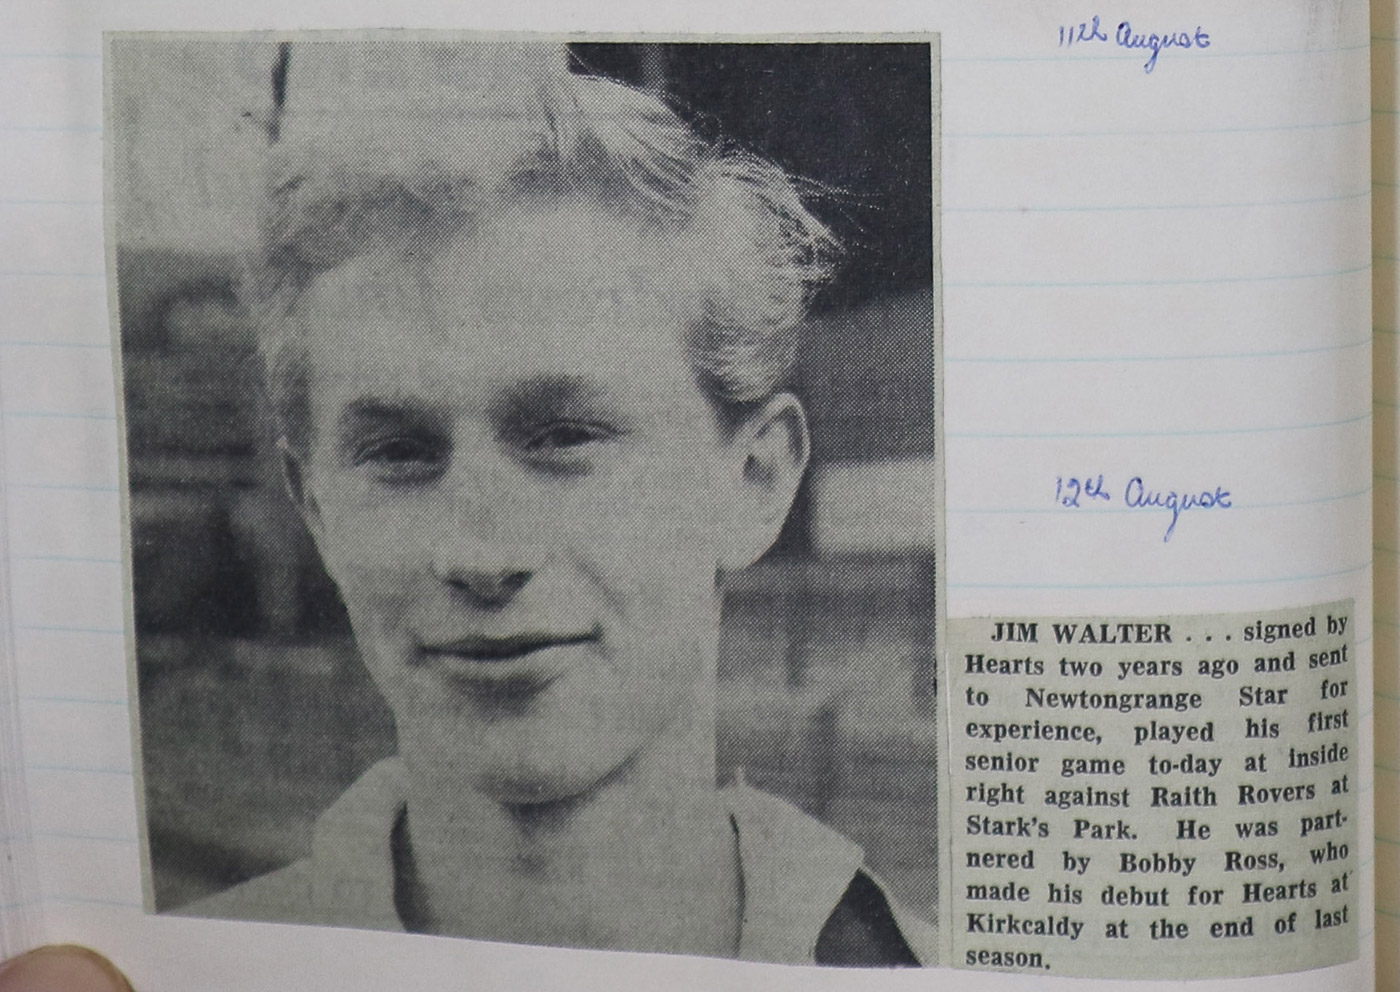 11th August
12th August
JIM WALTER . . . signed by
Hearts two years ago and sent
to Newtongrange Star for
experience, played his first
senior game to-day at inside
right against Raith Rovers at
Stark's Park. He was part-
nered by Bobby Ross, who
made his debut for Hearts at
Kirkcaldy at the end of last
season.